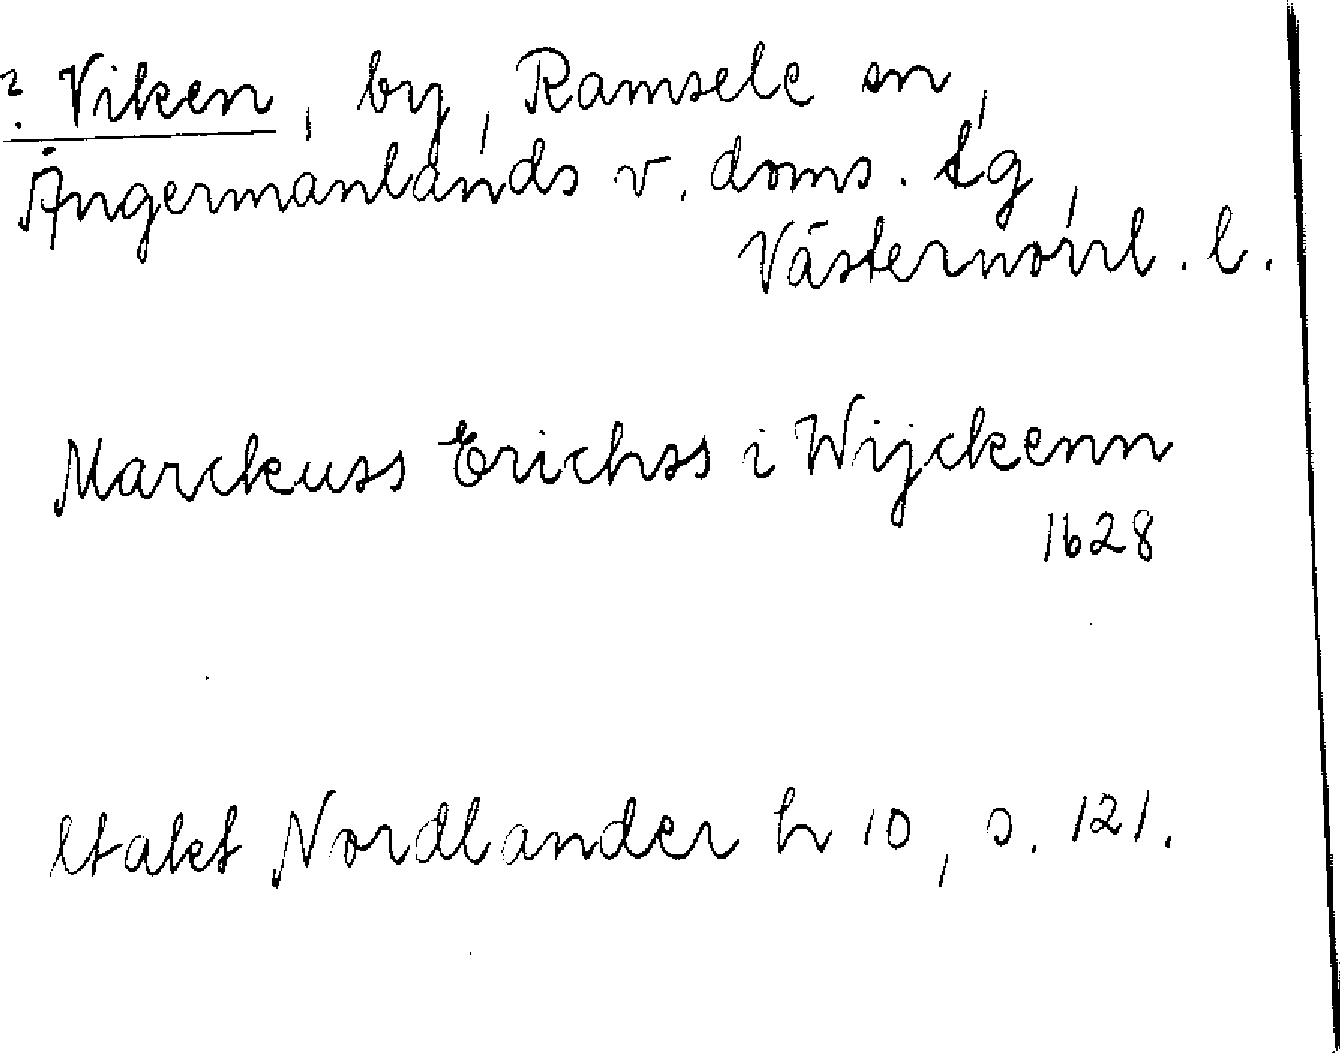 ? Viken, by, Ramsele sn,
Ångermanlands v. doms. tg,
Västernorrl. l.
Marckuss Erichss i Wijckenn
1628
Nordlander h 10, s. 121.